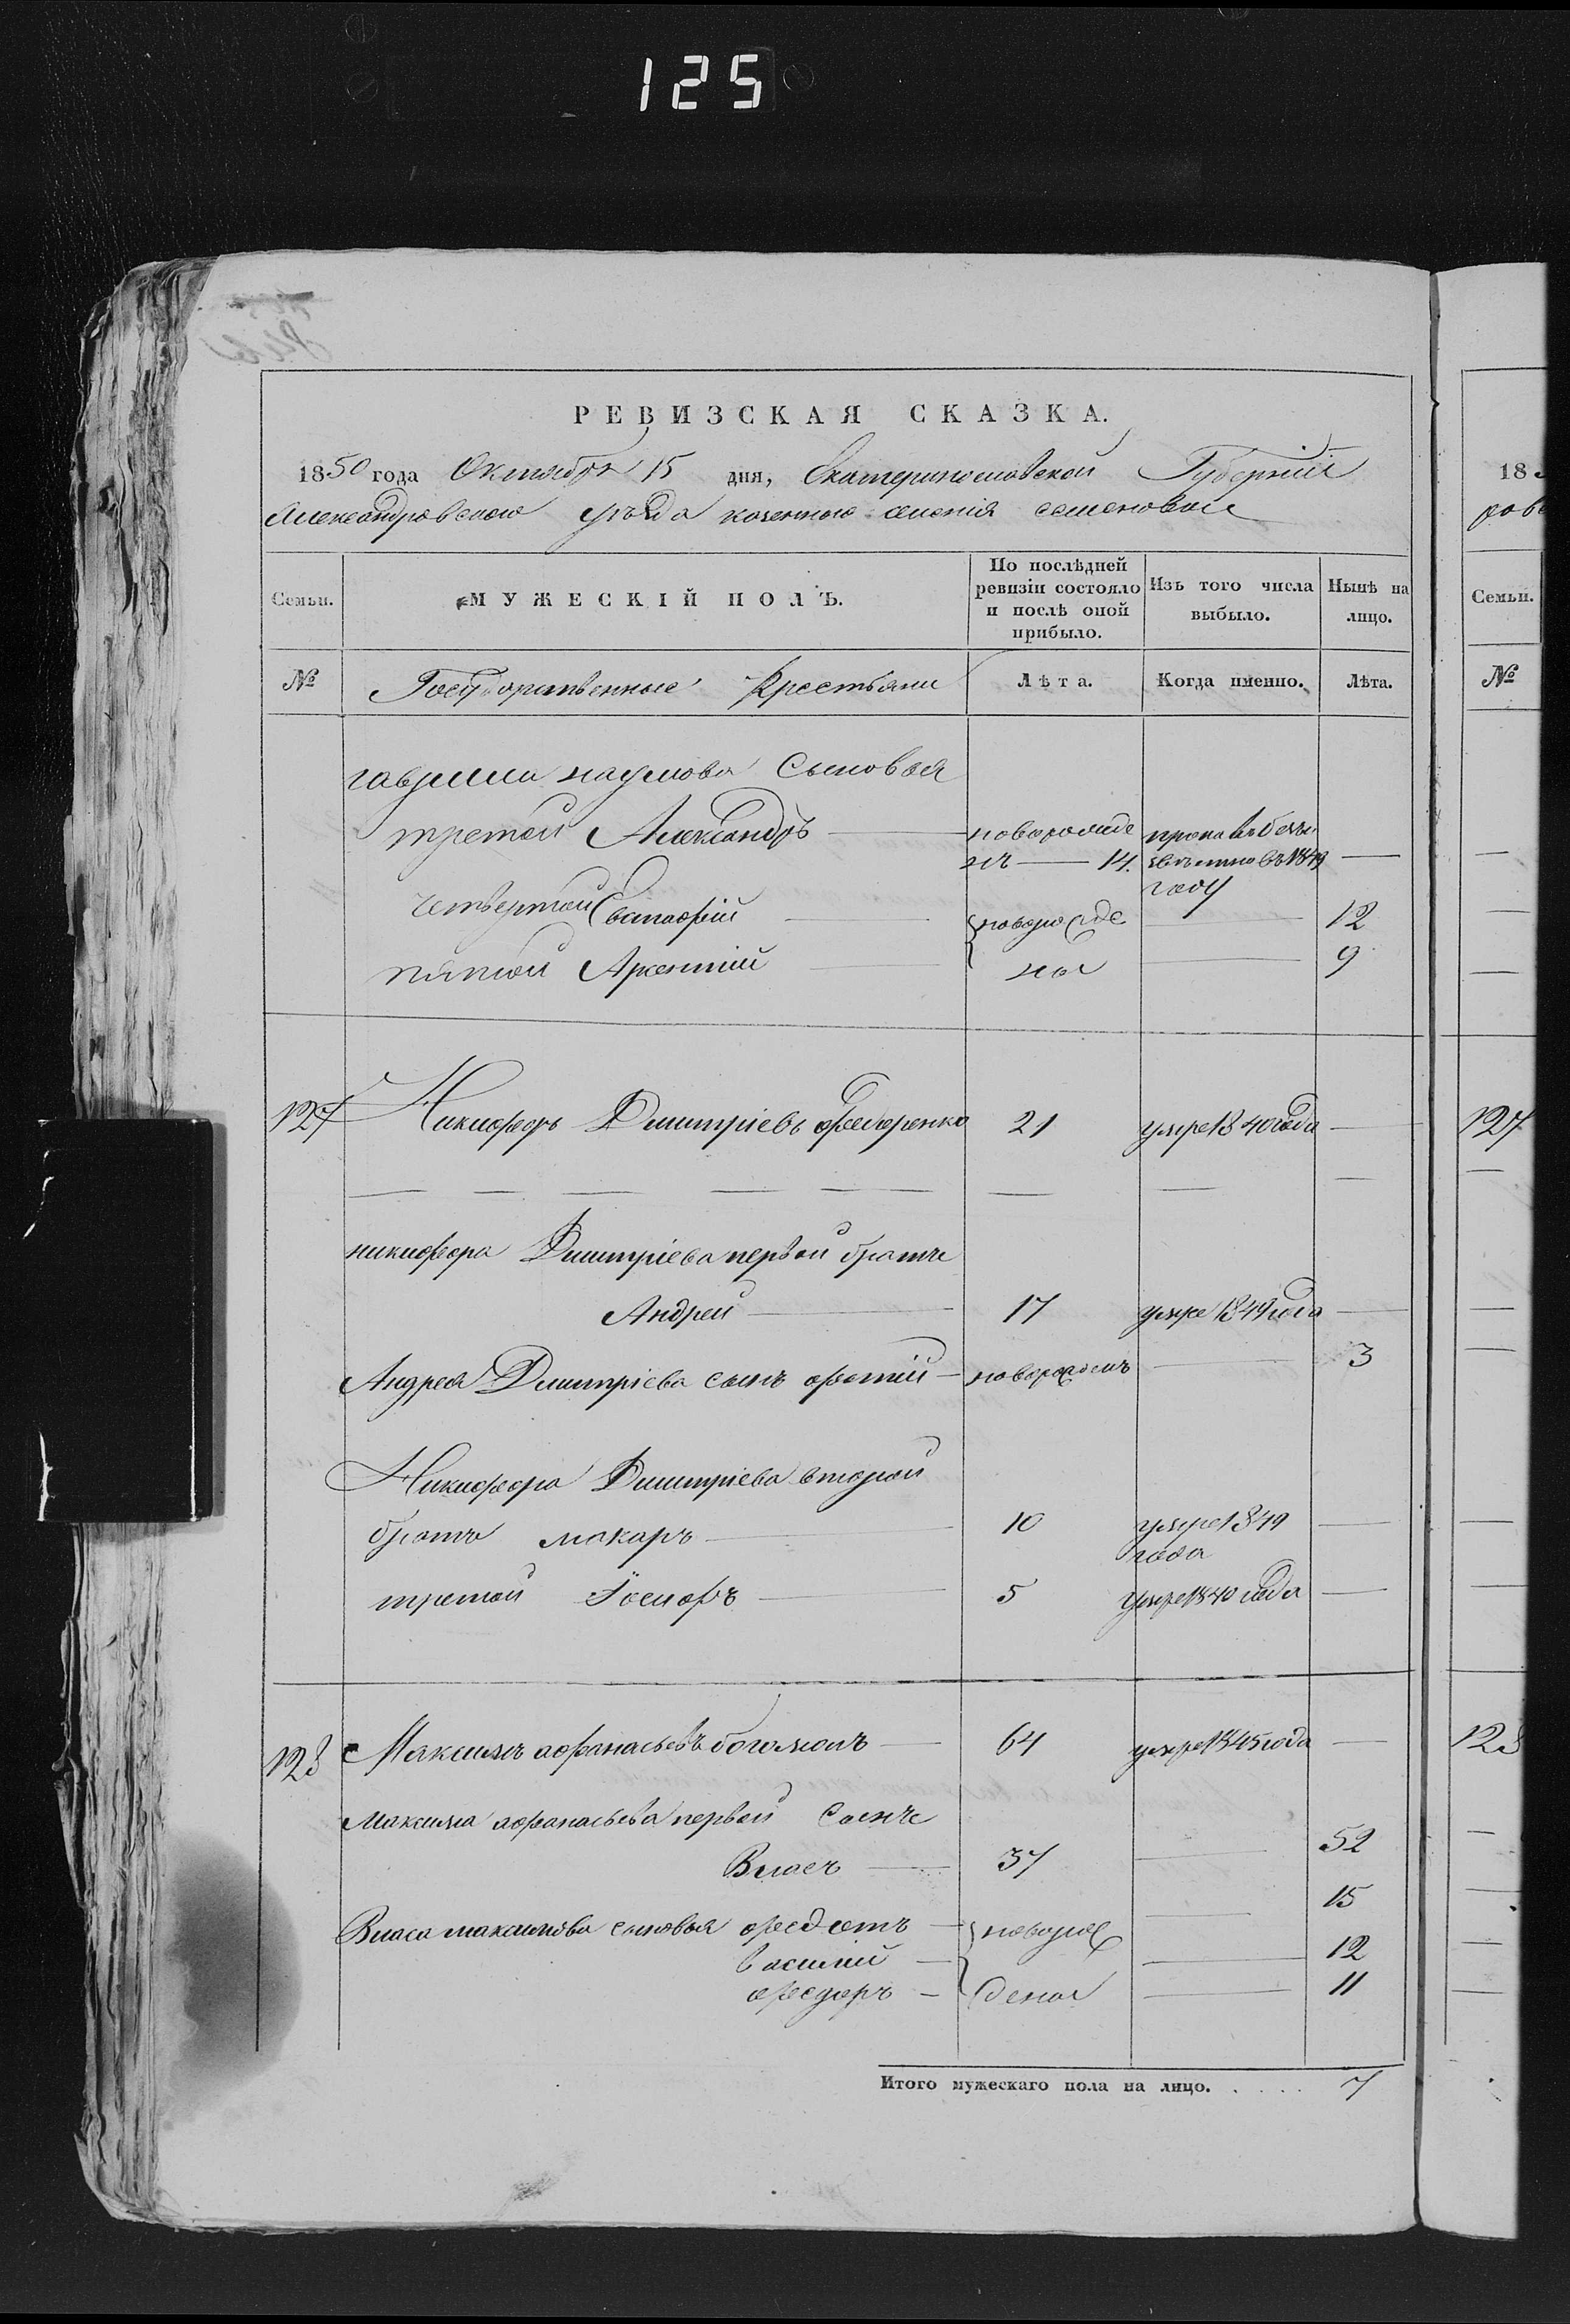 125
РЕВИЗСКАЯ СКАЗКА.
1850 года Октября 15 дня, Екатеринославской Губерніи
Александровского уѣзда казенного селенія семеновки
Семьи. МУЖЕСКІЙ ПОЛЪ. По послѣдней ревизіи состояло и послѣ оной прибыло. Изъ того числа выбыло. Нынѣ на лицо.
№ Государственные Крестьяни Лѣта. Когда именно. Лѣта.
гаврила наумова сыновья
третой Александръ новорожде пропа въ безъи
нъ 14. звѣстно въ 1849
году
четвертой Евстафій новорожде 12
пятой Арсентій ны 9
127 Никифоръ Димитріевъ федоренко 21 умре 1840 года
никифора Димитріева первой братъ
Андрей 17 умре 1849 года
Андрея Димитріева сынъ фотій новорожденъ 3
Никифора Димитріева второй
братъ макаръ 10 умре 1849
года
третой Іосифъ 5 умре 1840 года
128 Максимъ афанасьевъ богомолъ 64 умре 1845 года
Максима афанасьева первой сынъ
Власъ 37 52
Власа максимова сыновья федотъ новорож 15
василий 12
федоръ дены 11
Итого мужескаго пола на лицо. . . . . 7
18
Семьи.
№
127
128